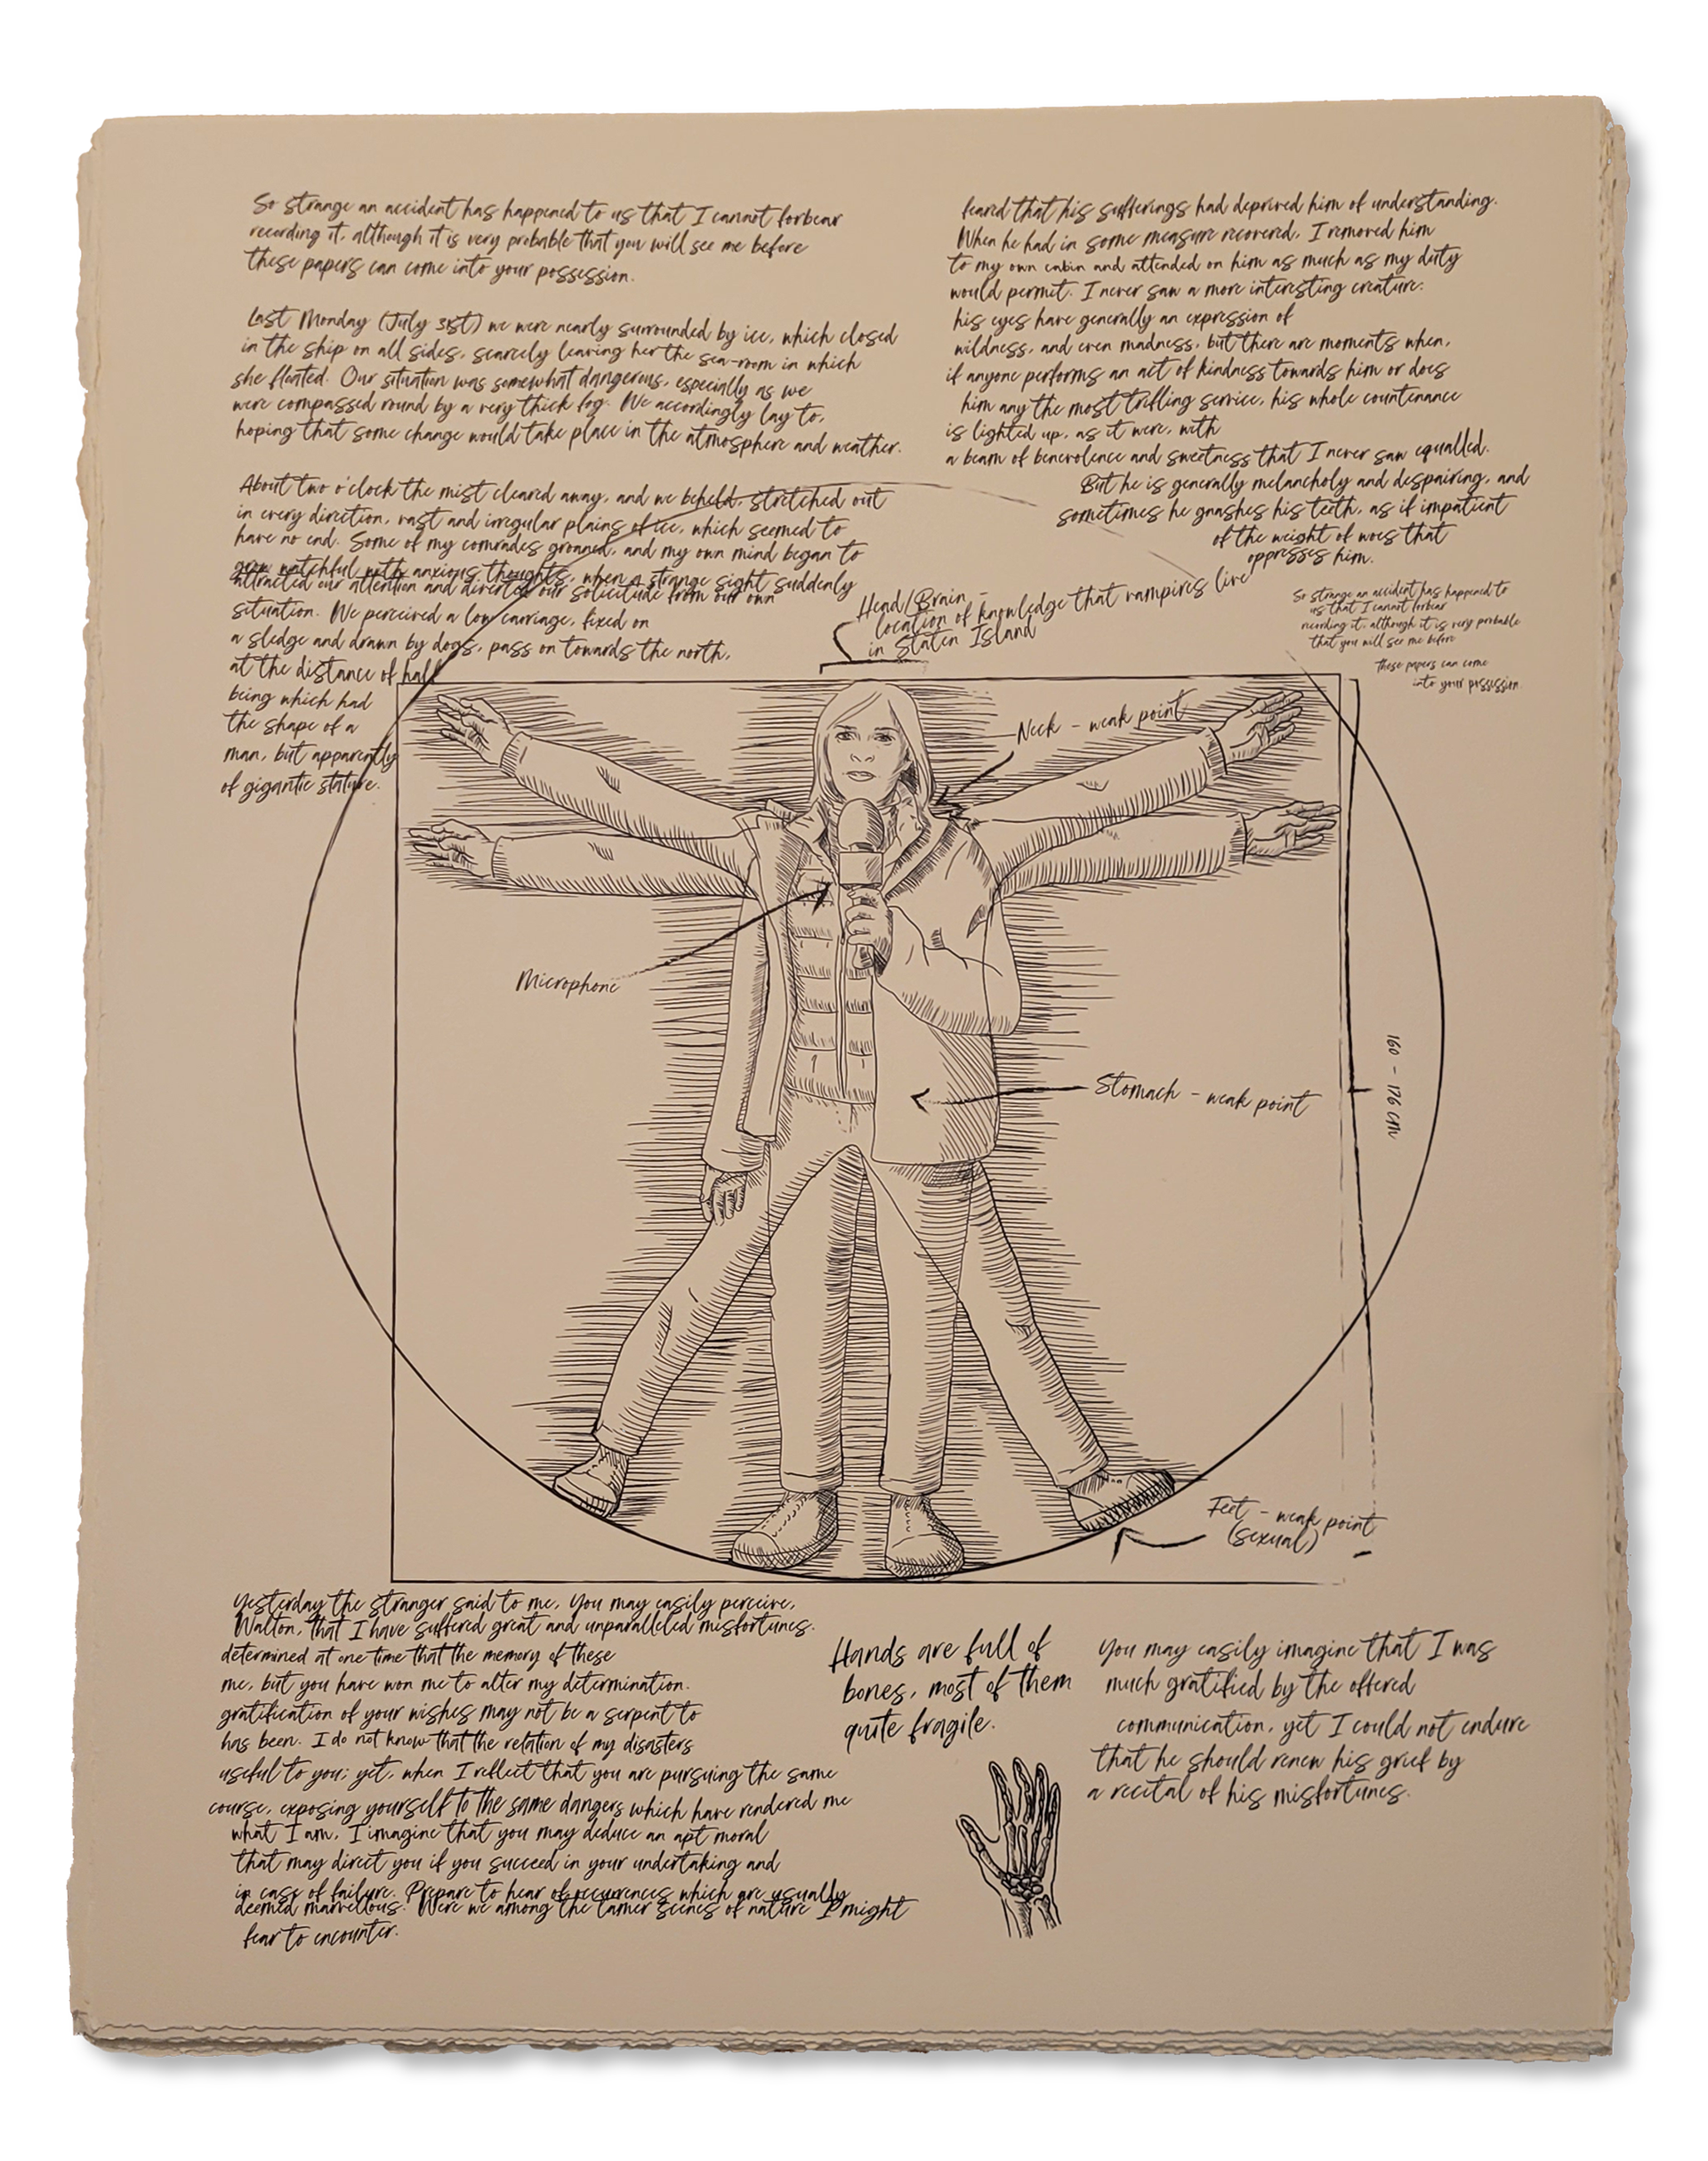 So strange an accident has happened to us that I cannot forbear
recording it, although it is very probable that you will see me before
these papers can come into your possession.
Last Monday (July 31st) we were nearly surrounded by ice, which closed
in the ship on all sides, scarcely leaving her the sea-room in which
she floated. Our situation was somewhat dangerous, especially as we
were compassed round by a very thick fog. We accordingly lay to,
hoping that some change would take place in the atmosphere and weather.
About two o'clock the mist cleared away, and we beheld, stretched out
in every direction, vast and irregular plains of ice, which seemed to
have no end. Some of my comrades groaned, and my own mind began to
grow watchful with anxious thoughts, when a strange sight suddenly
attracted our attention and diverted our solicitude from our own
situation. We perceived a low carriage, fixed on
a sledge and drawn by dogs, pass on towards the north,
at the distance of half
being which had
the shape of a
man, but apparently
of gigantic stature.
feared that his sufferings had deprived him of understanding.
When he had in some measure recovered, I removed him
to my own cabin and attended on him as much as my duty
would permit. I never saw a more interesting creature:
his eyes have generally an expression of
wildness, and even madness, but there are moments when,
if anyone performs an act of kindness towards him or does
him any the most trifling service, his whole countenance
is lighted up, as it were, with
a beam of benevolence and sweetness that I never saw equalled.
But he is generally melancholy and despairing, and
sometimes he gnashes his teeth, as if impatient
of the weight of woes that
oppresses him.
So strange an accident has happened to
us that I cannot forbear
recording it, although it is very probable
that you will see me before
these papers can come
into your possession.
Head/Brain -
location of knowledge that vampires live
in Staten Island
Neck - weak point
Microphone
Stomach - weak point
160 - 176 cm
Feet - weak point
(sexual)
Yesterday the stranger said to me, You may easily perceive,
Walton, that I have suffered great and unparalleled misfortunes.
determined at one time that the memory of these
me, but you have won me to alter my determination.
gratification of your wishes may not be a serpent to
has been. I do not know that the relation of my disasters
useful to you; yet, when I reflect that you are pursuing the same
course, exposing yourself to the same dangers which have rendered me
what I am, I imagine that you may deduce an apt moral
that may direct you if you succeed in your undertaking and
in case of failure. Prepare to hear of occurrences which are usually
deemed marvellous. Were we among the tamer scenes of nature I might
fear to encounter.
Hands are full of
bones, most of them
quite fragile.
You may easily imagine that I was
much gratified by the offered
communication, yet I could not endure
that he should renew his grief by
a recital of his misfortunes.